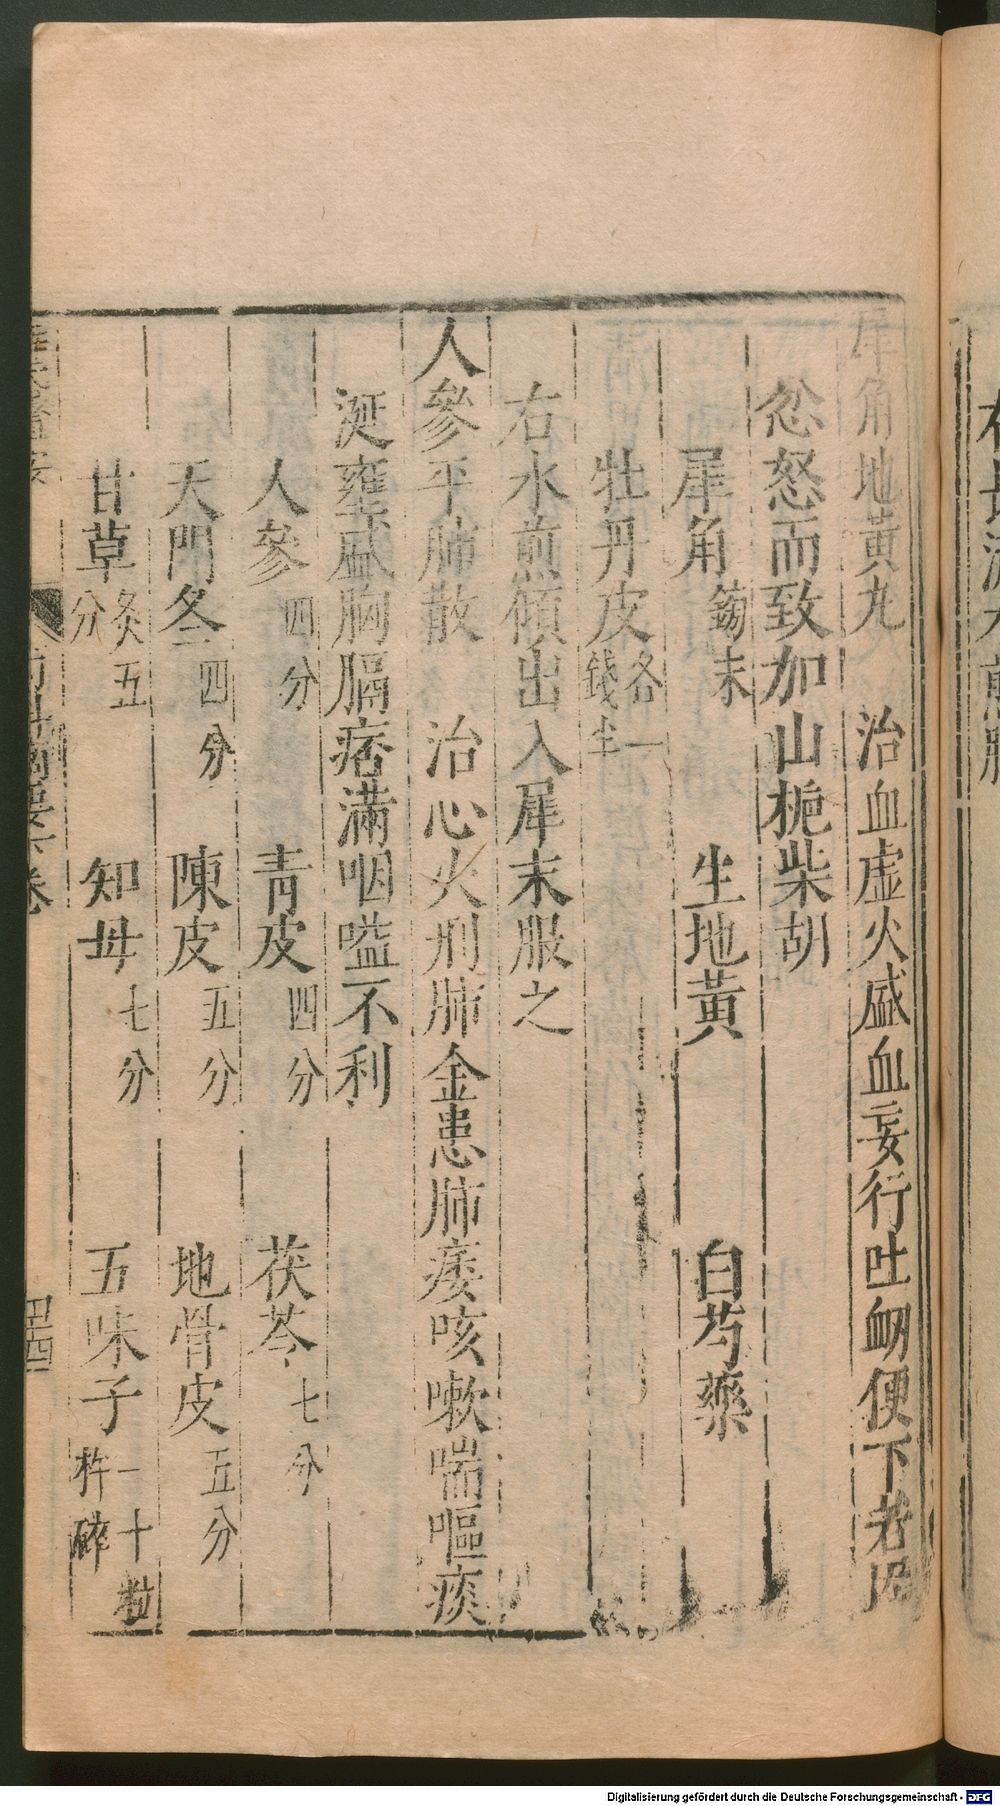 犀角地黃丸　治血虛火盛血妄行吐衂便下者因
忿怒而致加山梔柴胡
犀角鎊末　生地黃　白芍藥
牡丹皮各一錢半
右水煎傾出入犀末服之
人參平肺散　治心火刑肺金患肺痿咳嗽喘嘔痰
涎壅盛胸膈痞滿咽嗌不利
人參四分　青皮四分　茯苓七分
天門冬四分　陳皮五分　地骨皮五分
甘草炙五分　知母七分　五味子二十粒杵碎
四四
Digitalisierung gefördert durch die Deutsche Forschungsgemeinschaft - DFG